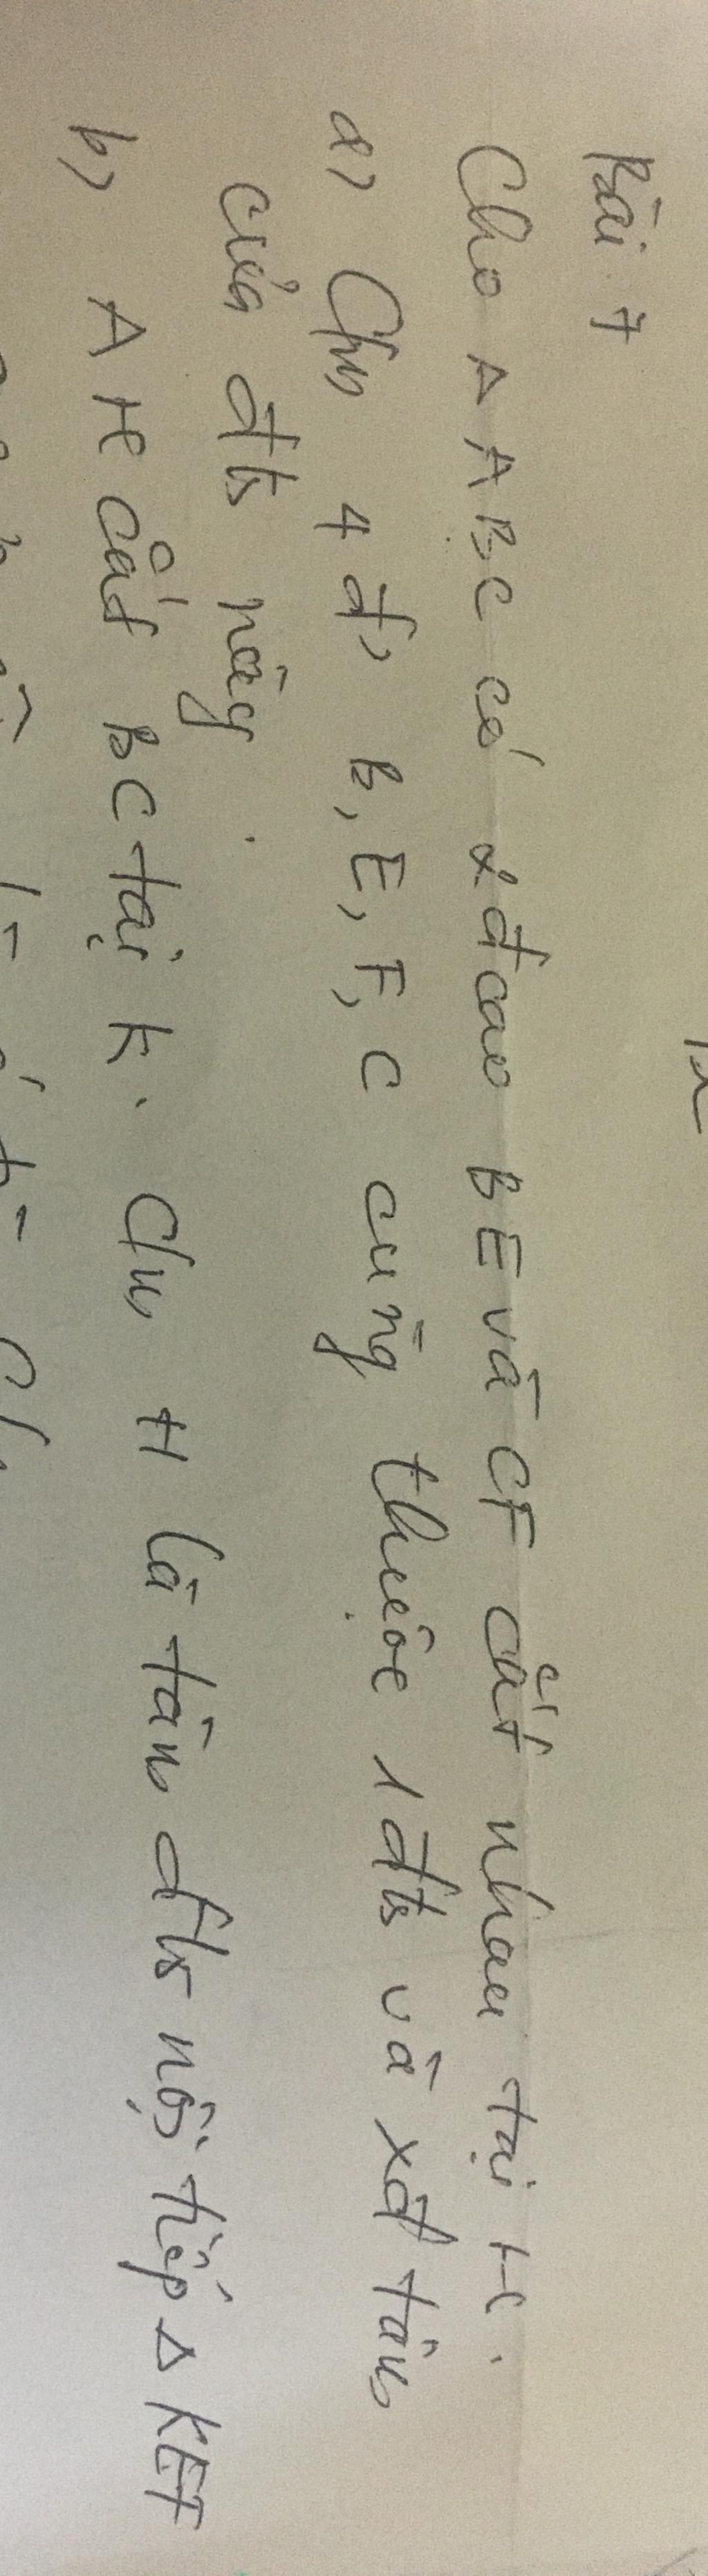 Bài 7
Cho Δ ABC có 2 đcao BE và CF cắt nhau tại H.
a, Cm 4 đ' B, E, F, C cùng thuộc 1 đts và xđ tâm
của đts này.
b, AH cắt BC tại K. Cm H là tâm đts nội tiếp Δ KEF